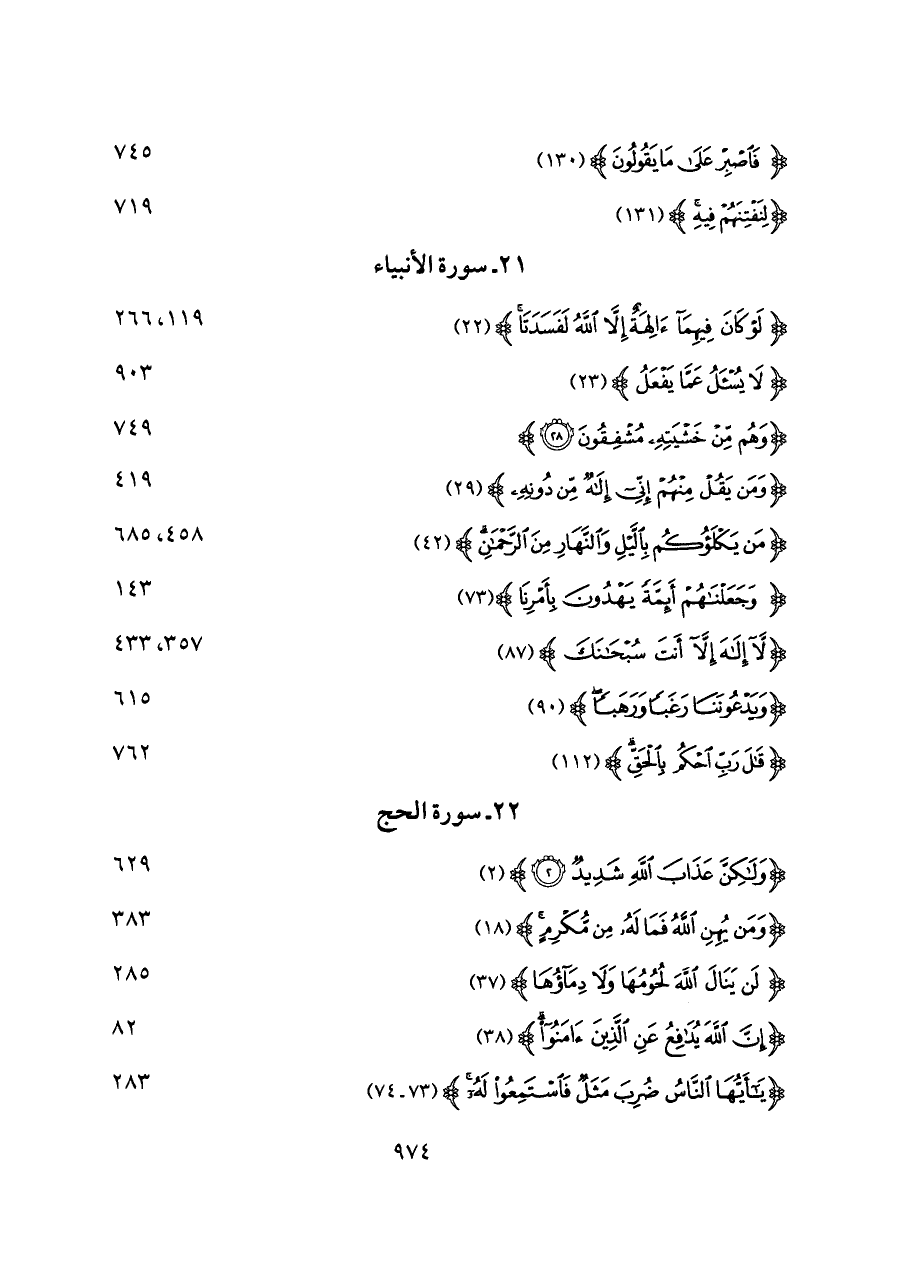 ﴿ فَٱصْبِرْ عَلَىٰ مَا يَقُولُونَ ﴾ (١٣٠) ٧٤٥
﴿لِنَفْتِنَهُمْ فِيهِۚ ﴾ (١٣١) ٧١٩
٢١ـ سورة الأنبياء
﴿ لَوْ كَانَ فِيهِمَآ ءَالِهَةٌ إِلَّا ٱللَّهُ لَفَسَدَتَاۚ ﴾ (٢٢) ١١٩، ٢٦٦
﴿ لَا يُسْـَٔلُ عَمَّا يَفْعَلُ ﴾ (٢٣) ٩٠٣
﴿وَهُم مِّنْ خَشْيَتِهِۦ مُشْفِقُونَ ٢٨ ﴾ ٧٤٩
﴿وَمَن يَقُلْ مِنْهُمْ إِنِّىٓ إِلَٰهٌ مِّن دُونِهِۦ ﴾ (٢٩) ٤١٩
﴿ مَن يَكْلَؤُكُم بِٱلَّيْلِ وَٱلنَّهَارِ مِنَ ٱلرَّحْمَٰنِۗ ﴾ (٤٢) ٤٥٨، ٦٨٥
﴿ وَجَعَلْنَٰهُمْ أَئِمَّةً يَهْدُونَ بِأَمْرِنَا ﴾ (٧٣) ١٤٣
﴿لَّآ إِلَٰهَ إِلَّآ أَنتَ سُبْحَٰنَكَ ﴾ (٨٧) ٣٥٧، ٤٣٣
﴿وَيَدْعُونَنَا رَغَبًا وَرَهَبًاۖ ﴾ (٩٠) ٦١٥
﴿ قَٰلَ رَبِّ ٱحْكُم بِٱلْحَقِّۗ ﴾ (١١٢) ٧٦٢
٢٢ـ سورة الحج
﴿وَلَٰكِنَّ عَذَابَ ٱللَّهِ شَدِيدٌ ٢ ﴾ (٢) ٦٢٩
﴿وَمَن يُهِنِ ٱللَّهُ فَمَا لَهُۥ مِن مُّكْرِمٍۚ ﴾ (١٨) ٣٨٣
﴿ لَن يَنَالَ ٱللَّهَ لُحُومُهَا وَلَا دِمَآؤُهَا ﴾ (٣٧) ٢٨٥
﴿إِنَّ ٱللَّهَ يُدَٰفِعُ عَنِ ٱلَّذِينَ ءَامَنُوٓا۟ۗ ﴾ (٣٨) ٨٢
﴿يَٰٓأَيُّهَا ٱلنَّاسُ ضُرِبَ مَثَلٌ فَٱسْتَمِعُوا۟ لَهُۥٓۚ ﴾ (٧٣ـ٧٤) ٢٨٣
٩٧٤